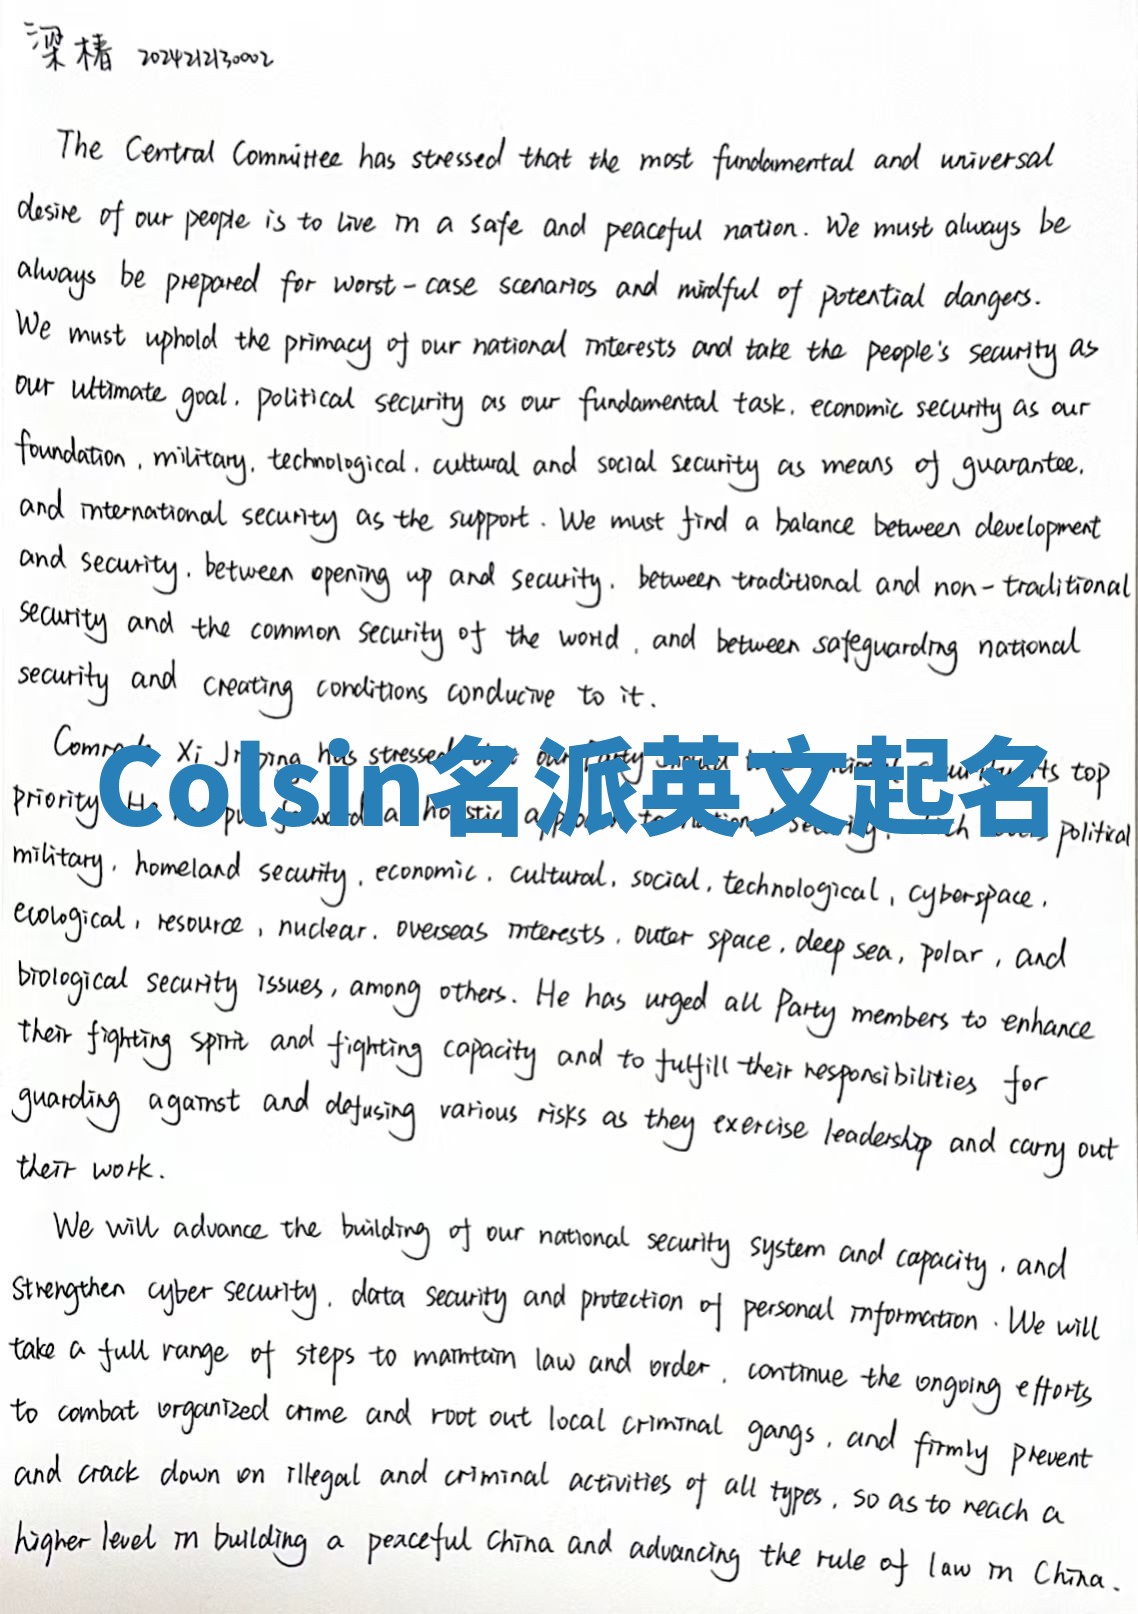 梁椿 2024212130002
The Central Committee has stressed that the most fundamental and universal
desire of our people is to live in a safe and peaceful nation. We must always be
always be prepared for worst-case scenarios and mindful of potential dangers.
We must uphold the primacy of our national interests and take the people's security as
our ultimate goal, political security as our fundamental task, economic security as our
foundation, military, technological, cultural and social security as means of guarantee,
and international security as the support. We must find a balance between development
and security, between opening up and security, between traditional and non-traditional
security and the common security of the world, and between safeguarding national
security and creating conditions conducive to it.
Xi Jinping has stressed our Party top
Colsin名派英文起名
priority. He a holistic political
military, homeland security, economic, cultural, social, technological, cyberspace,
ecological, resource, nuclear, overseas interests, outer space, deep sea, polar, and
biological security issues, among others. He has urged all Party members to enhance
their fighting spirit and fighting capacity and to fulfill their responsibilities for
guarding against and defusing various risks as they exercise leadership and carry out
their work.
We will advance the building of our national security system and capacity, and
strengthen cyber security, data security and protection of personal information. We will
take a full range of steps to maintain law and order, continue the ongoing efforts
to combat organized crime and root out local criminal gangs, and firmly prevent
and crack down on illegal and criminal activities of all types, so as to reach a
higher level in building a peaceful China and advancing the rule of law in China.